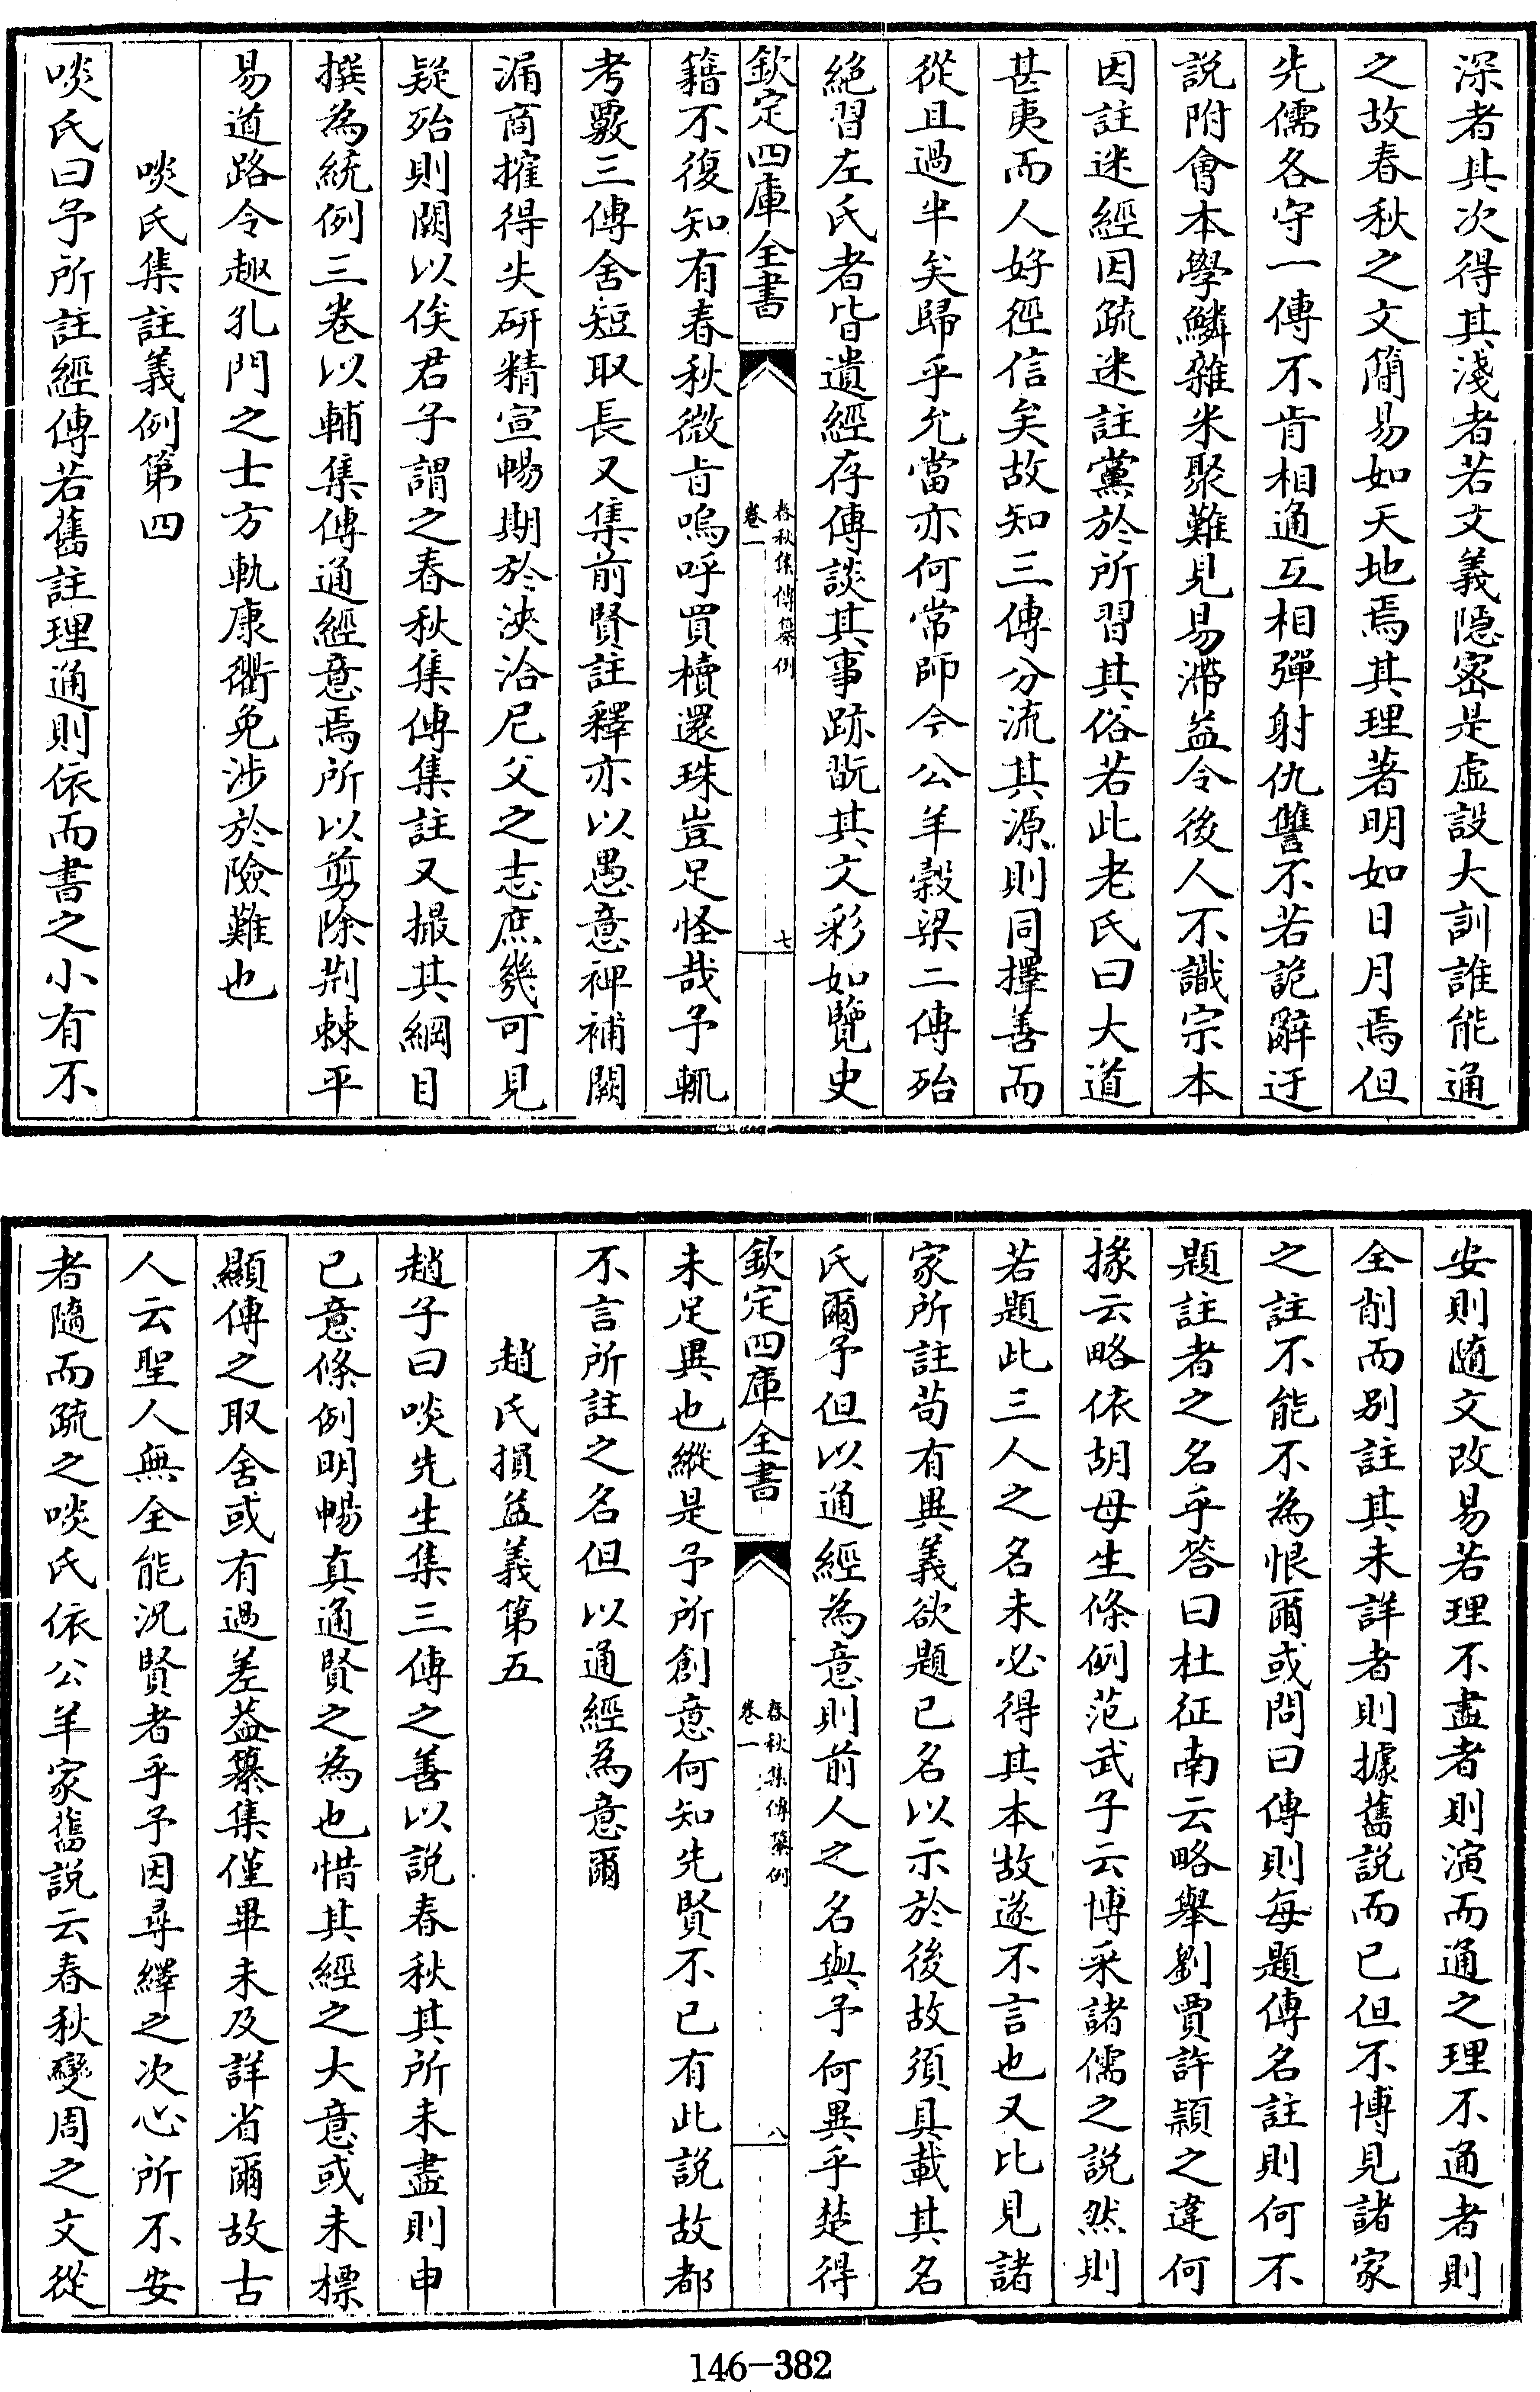 深者其次得其淺者若文義隱密是虛設大訓誰能通
之故春秋之文簡易如天地焉其理著明如日月焉但
先儒各守一傳不肯相通互相彈射仇讐不若詭辭迂
說附會本學鱗雜米聚難見易滯益令後人不識宗本
因註迷經因疏迷註黨於所習其俗若此老氏曰大道
甚夷而人好徑信矣故知三傳分流其源則同擇善而
從且過半矣歸乎允當亦何常師今公羊穀梁二傳殆
絕習左氏者皆遺經存傳談其事跡翫其文彩如覽史
欽定四庫全書
春秋集傳纂例
卷一
七
籍不復知有春秋微旨嗚呼買櫝還珠豈足怪哉予輒
考覈三傳舍短取長又集前賢註釋亦以愚意裨補闕
漏商搉得失研精宣暢期於浹洽尼父之志庶幾可見
疑殆則闕以俟君子謂之春秋集傳集註又撮其綱目
撰為統例三卷以輔集傳通經意焉所以剪除荆棘平
易道路令趣孔門之士方軌康衢免涉於險難也
啖氏集註義例第四
啖氏曰予所註經傳若舊註理通則依而書之小有不
安則隨文改易若理不盡者則演而通之理不通者則
全削而別註其未詳者則據舊說而已但不博見諸家
之註不能不為恨爾或問曰傳則每題傳名註則何不
題註者之名乎答曰杜征南云略舉劉賈許頴之違何
掾云略依胡母生條例范武子云博采諸儒之說然則
若題此三人之名未必得其本故遂不言也又比見諸
家所註苟有異義欲題已名以示於後故須具載其名
氏爾予但以通經為意則前人之名與予何異乎楚得
欽定四庫全書
春秋集傳纂例
卷一
八
未足異也縱是予所創意何知先賢不已有此說故都
不言所註之名但以通經為意爾
趙氏損益義第五
趙子曰啖先生集三傳之善以說春秋其所未盡則申
已意條例明暢真通賢之為也惜其經之大意或未標
顯傳之取舍或有過差蓋纂集僅畢未及詳省爾故古
人云聖人無全能況賢者乎予因尋繹之次心所不安
者隨而疏之啖氏依公羊家舊說云春秋變周之文從
146-382